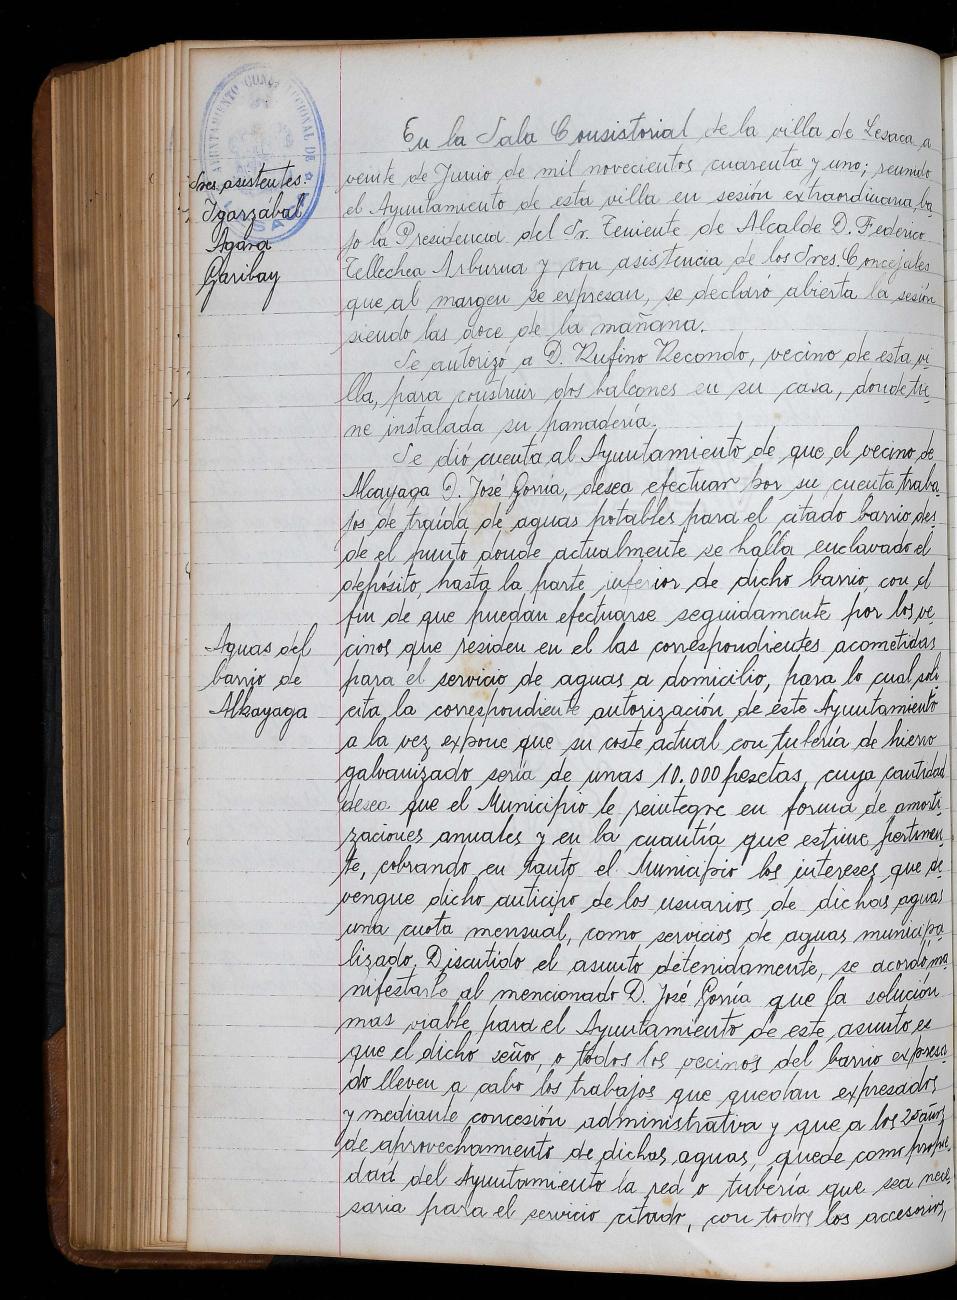 AYUNTAMIENTO CONSTITUCIONAL DE
LESACA
Sres. asistentes.
Igarzabal
Agara
Garibay
En la Sala Consistorial de la villa de Lesaca, a
veinte de Junio de mil novecientos cuarenta y uno; reunido
el Ayuntamiento de esta villa en sesión extraordinaria, ba-
jo la Presidencia del Sr. Teniente de Alcalde D. Federico
Tellechea Arburua y con asistencia de los Sres. Concejales
que al margen se expresan, se declaró abierta la sesión
siendo las doce de la mañana.
Se autorizo a D. Rufino Recondo, vecino de esta vi-
lla, para construir dos balcones en su casa, donde tie-
ne instalada su panadería.
Se dió cuenta al Ayuntamiento de que el vecino de
Alcayaga D. José Goñia, desea efectuar por su cuenta traba-
jos de traída de aguas potables para el citado barrio, des-
de el punto donde actualmente se halla enclavado el
depósito, hasta la parte inferior de dicho barrio, con el
fin de que puedan efectuarse seguidamente por los ve-
Aguas del
barrio de
Alkayaga
cinos que residen en el las correspondientes acometidas
para el servicio de aguas a domicilio, para lo cual soli-
cita la correspondiente autorización de este Ayuntamiento
a la vez expone que su coste actual con tubería de hierro
galvanizado sería de unas 10.000 pesetas, cuya cantidad
desea que el Municipio le reintegre en forma de amorti-
zaciones anuales y en la cuantía que estime pertinen-
te, cobrando en tanto el Municipio los intereses que de-
vengue dicho anticipo de los usuarios de dichas aguas
una cuota mensual, como servicios de aguas municipa-
lizado. Discutido el asunto detenidamente, se acordó ma-
nifestarle al mencionado D. José Goñia que la solución
mas viable para el Ayuntamiento de este asunto es
que el dicho señor, o todos los vecinos del barrio expresa-
do lleven a cabo los trabajos que quedan expresados
y mediante concesión administrativa y que a los años
de aprovechamiento de dichas aguas, quede como propie-
dad del Ayuntamiento la red o tubería que sea nece-
saria para el servicio citado, con todos los accesorios,